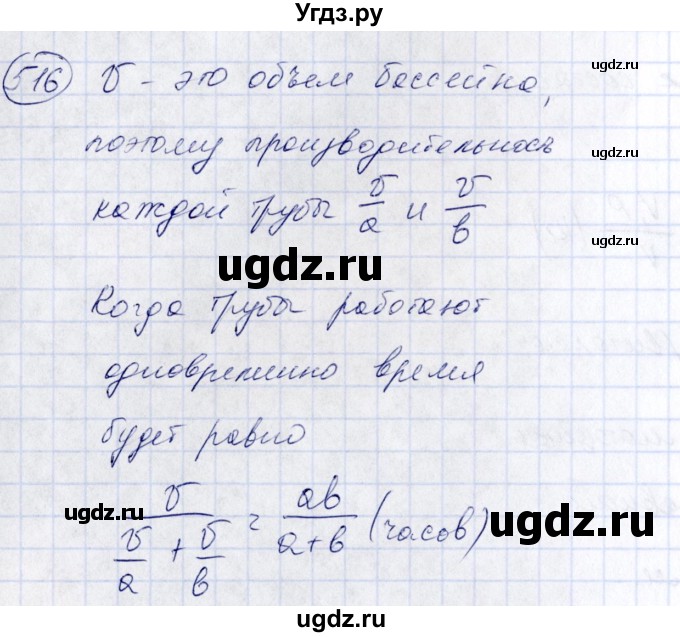 Угдз.ру
516 V - это объем бассейна,
поэтому производительность
каждой трубы V/a и V/b
ugdz.ru
Когда трубы работают
одновременно время
будет равно
V / (V/a + V/b) = ab / (a+b) (часов)
ugdz.ru
ugdz.ru
ugdz.ru
ugdz.ru
ugdz.ru
ugdz.ru
ugdz.ru